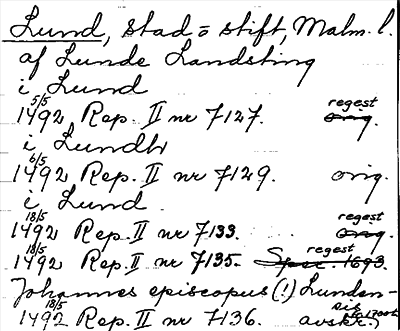 Lund, stad o stift, Malm. l.
af Lunde Landsting
i Lund
5/5 1492 Rep. II nr 7127. orig. regest
i Lundh
6/5 1492 Rep. II nr 7129. orig.
i Lund
18/5 1492 Rep. II nr 7133. orig. regest
18/5 1492 Rep. II nr 7135. Spec. 1693. regest
Johannes episcopus (!) Lunden-
18/5 1492 Rep. II nr 7136. avskr.